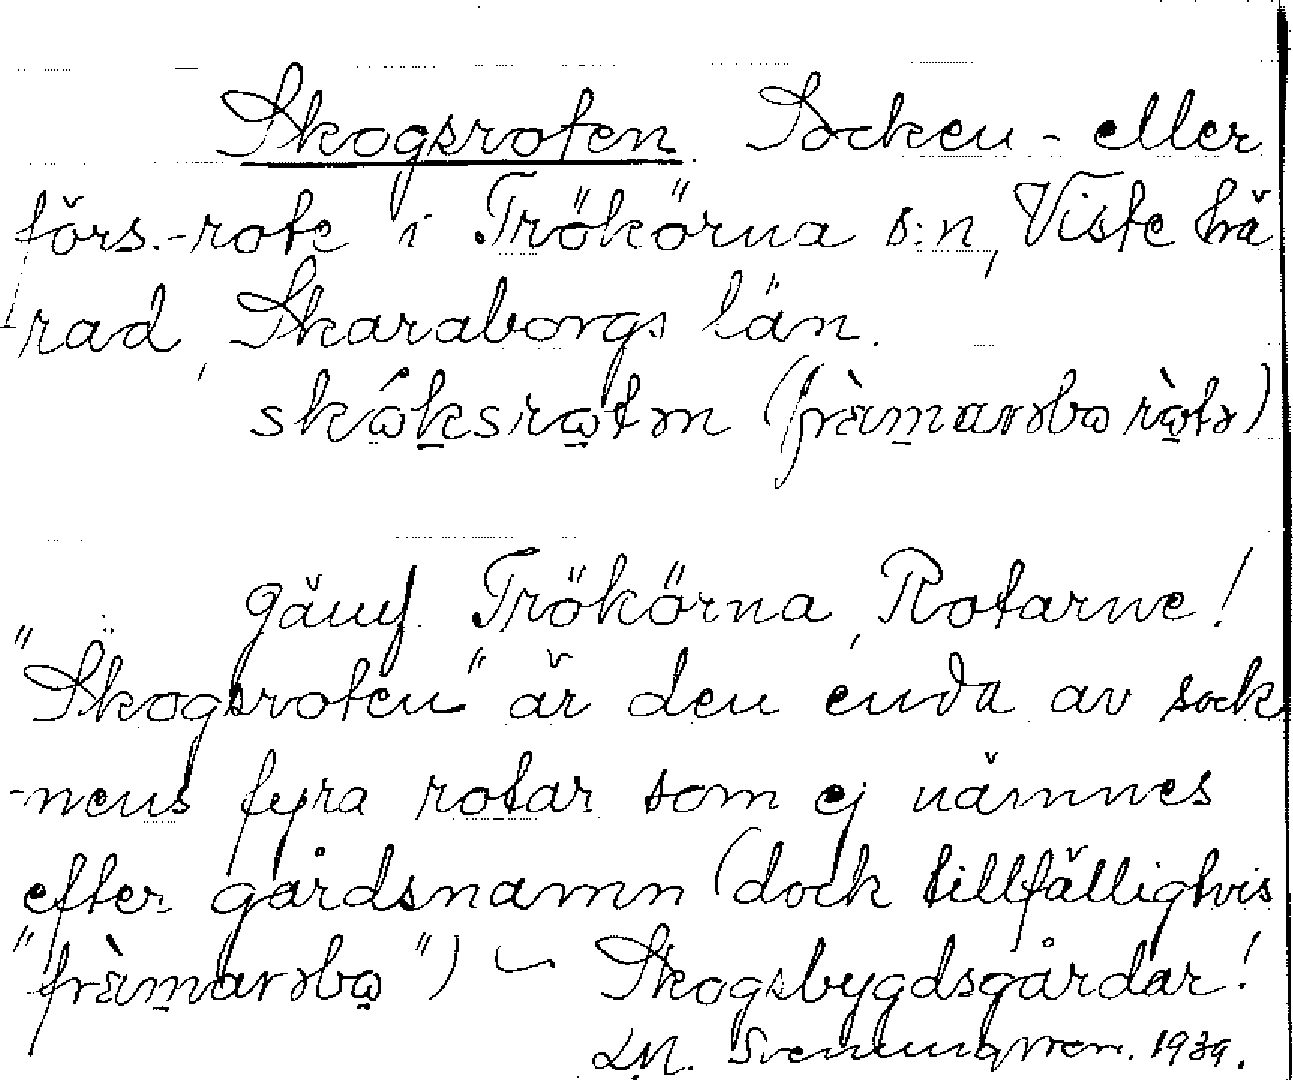 Skogsroten. Socken- eller
förs.-rote i Trökörna s:n, Viste hä
rad, Skaraborgs län.
skáksrotm (fràmarəbo ròtə)
Jämf. Trökörna, Rotarne!
"Skogsroten" är den enda av sock
-nens fyra rotar som ej nämnes
efter gårdsnamn (dock tillfälligtvis
"fràmarəbo") ~ Skogsbygdsgårdar!
1939.